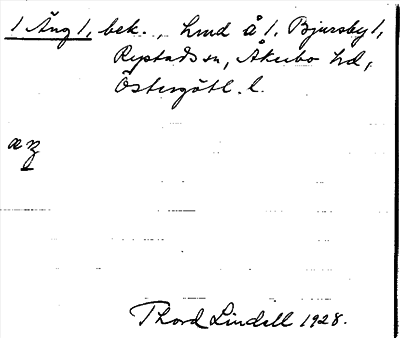 1 Äng 1, bek., hmd å 1. Bjursby 1,
Rystads sn, Åkerbo hd,
Östergötl. l.
Thord Lindell 1928.